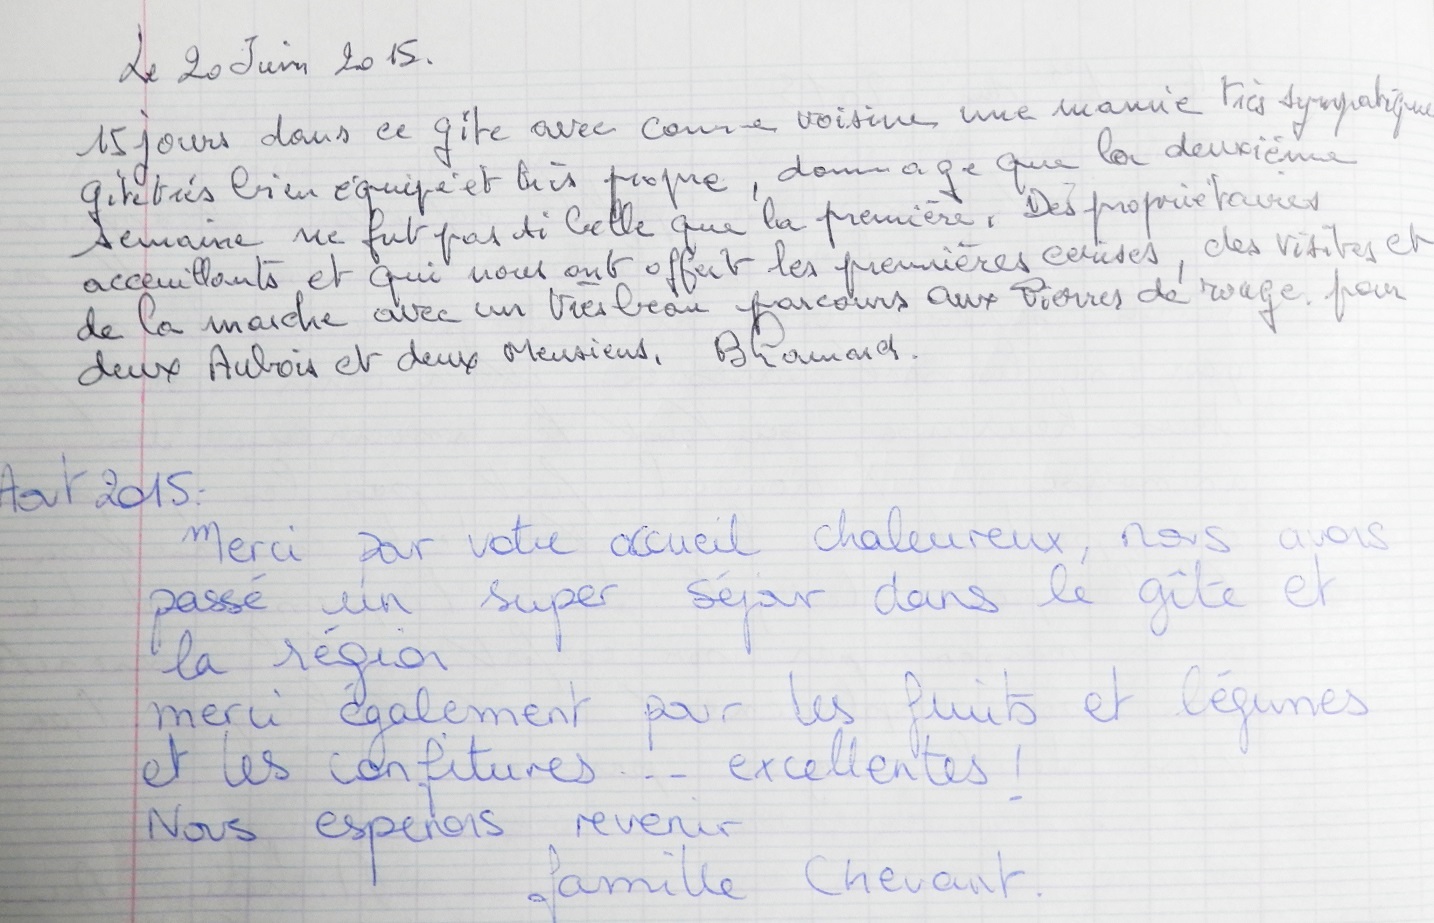 Le 20 Juin 2015.
15 jours dans ce gîte avec comme voisine une mamie très sympatique
gîte très bien équipé et très propre, dommage que la deuxième
semaine ne fut pas si belle que la première. Des propriétaires
acceuillants et qui nous ont offert les premières cerises, des visites et
de la marche avec un très beau parcours aux Pierres de rouge. pour
deux Aubois et deux Meusiens.
Aout 2015.
Merci pour votre accueil chaleureux, nous avons
passé un super séjour dans le gîte et
la région
merci également pour les fruits et légumes
et les confitures ... excellentes !
Nous esperons revenir
famille Chevant.